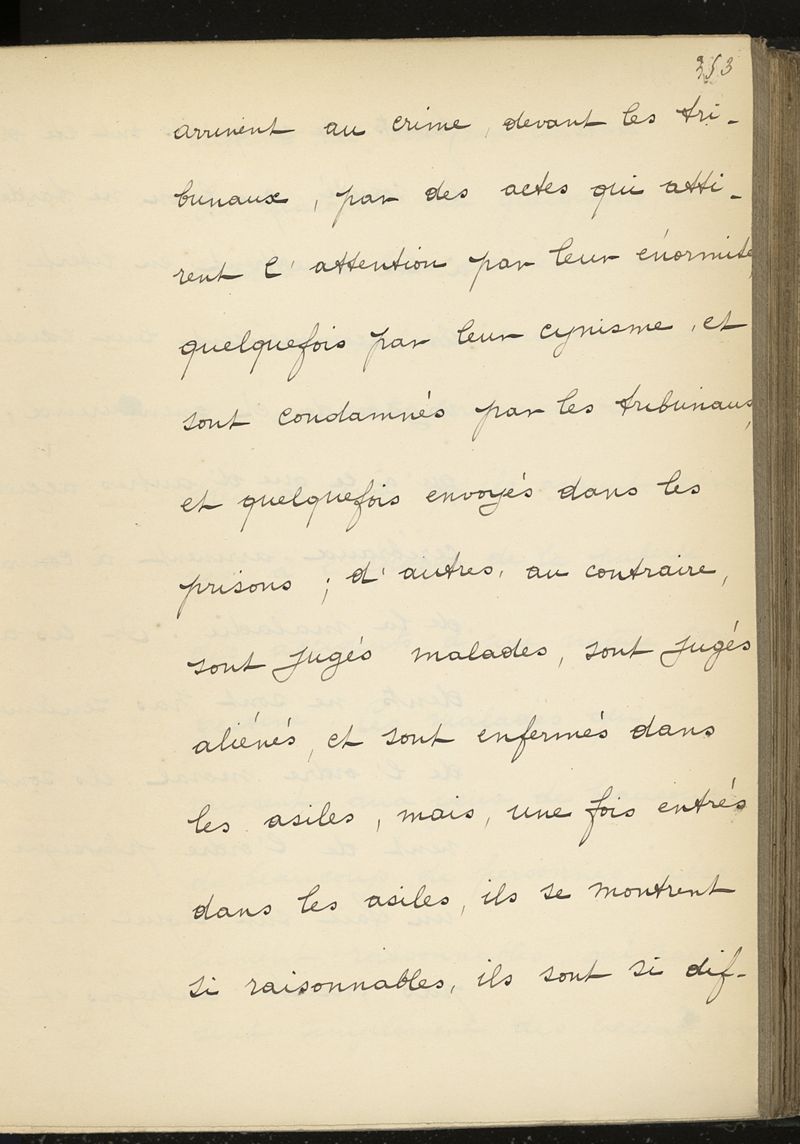 353
arrivent au crime, devant les tri-
bunaux, par des actes qui atti-
rent l'attention par leur énormité,
quelquefois par leur cynisme, et
sont condamnés par les tribunaux,
et quelquefois envoyés dans les
prisons ; d'autres, au contraire,
sont jugés malades, sont jugés
aliénés, et sont enfermés dans
les asiles, mais, une fois entrés
dans les asiles, ils se montrent
si raisonnables, ils sont si dif-